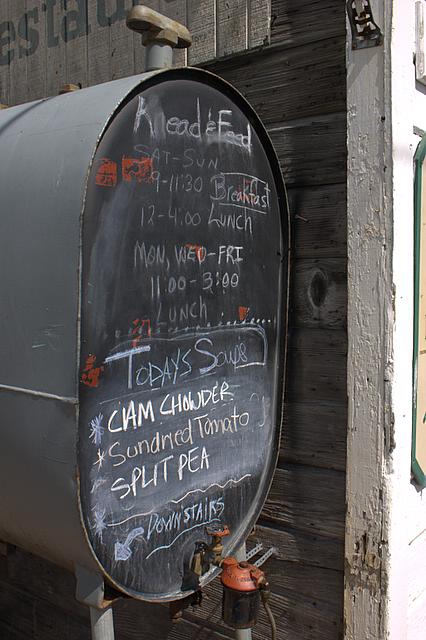 estau
Knead & Feed
SAT-SUN
9-11:30 Breakfast
12-4:00 Lunch
MON, WED-FRI
11:00-3:00
LUNCH
TODAYS Soups
* CLAM CHOWDER
* Sundried Tomato
SPLIT PEA
DOWNSTAIRS